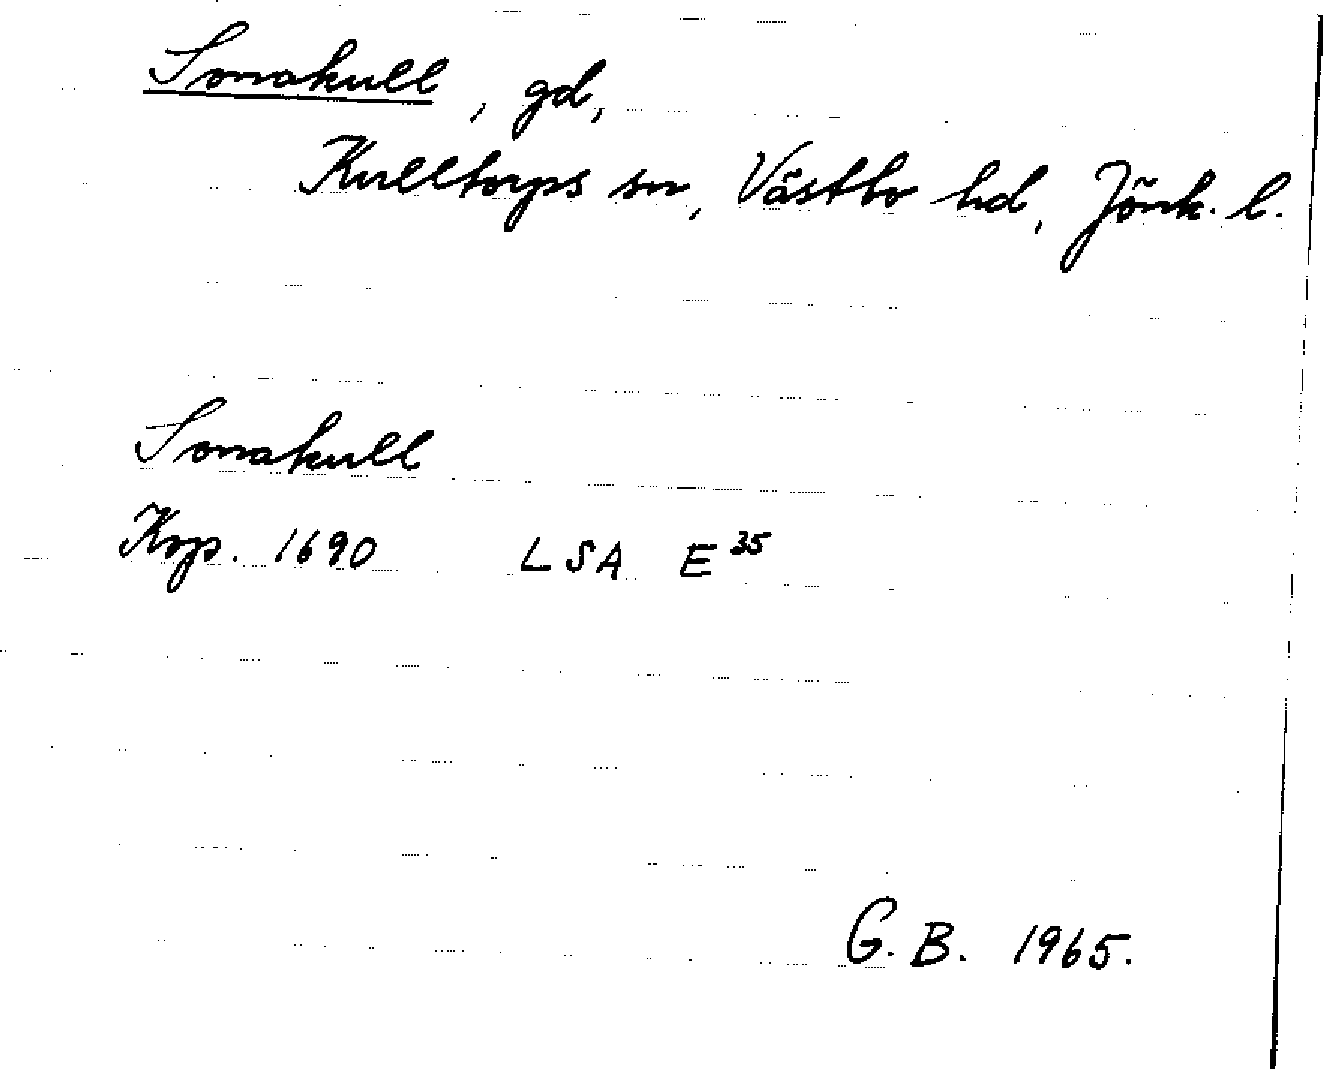 Sonakull, gd,
Kulltorps sn, Västbo hd, Jönk. l.
Sonakull
Kop. 1690 LSA E³⁵
G. B. 1965.